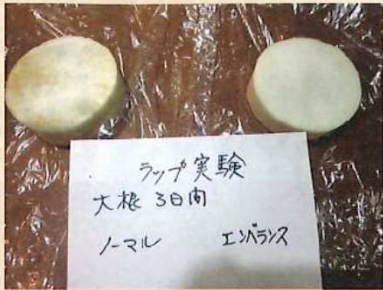 ラップ実験
大根 3日間
ノーマル エンバランス